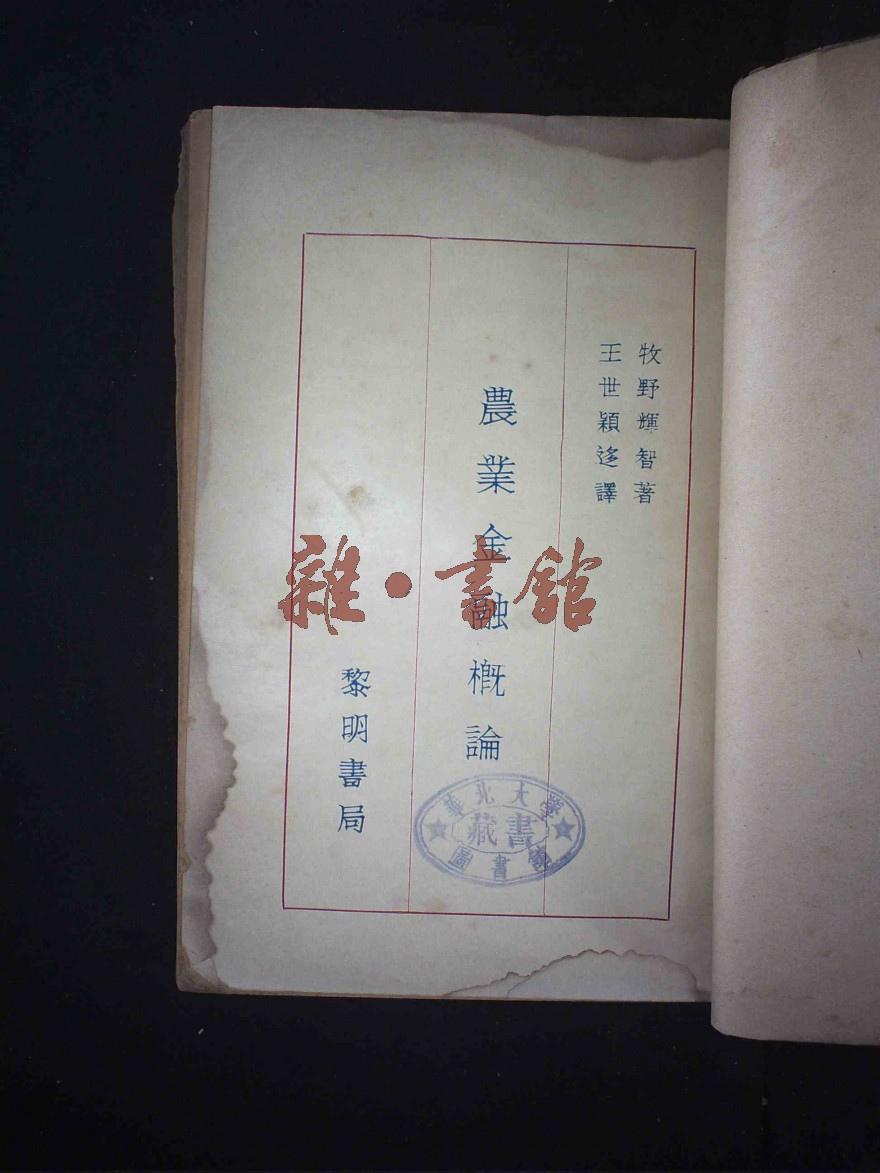 牧野輝智著
王世穎迻譯
農業金融概論
黎明書局
雜·書館
華北大學
藏書
圖書館